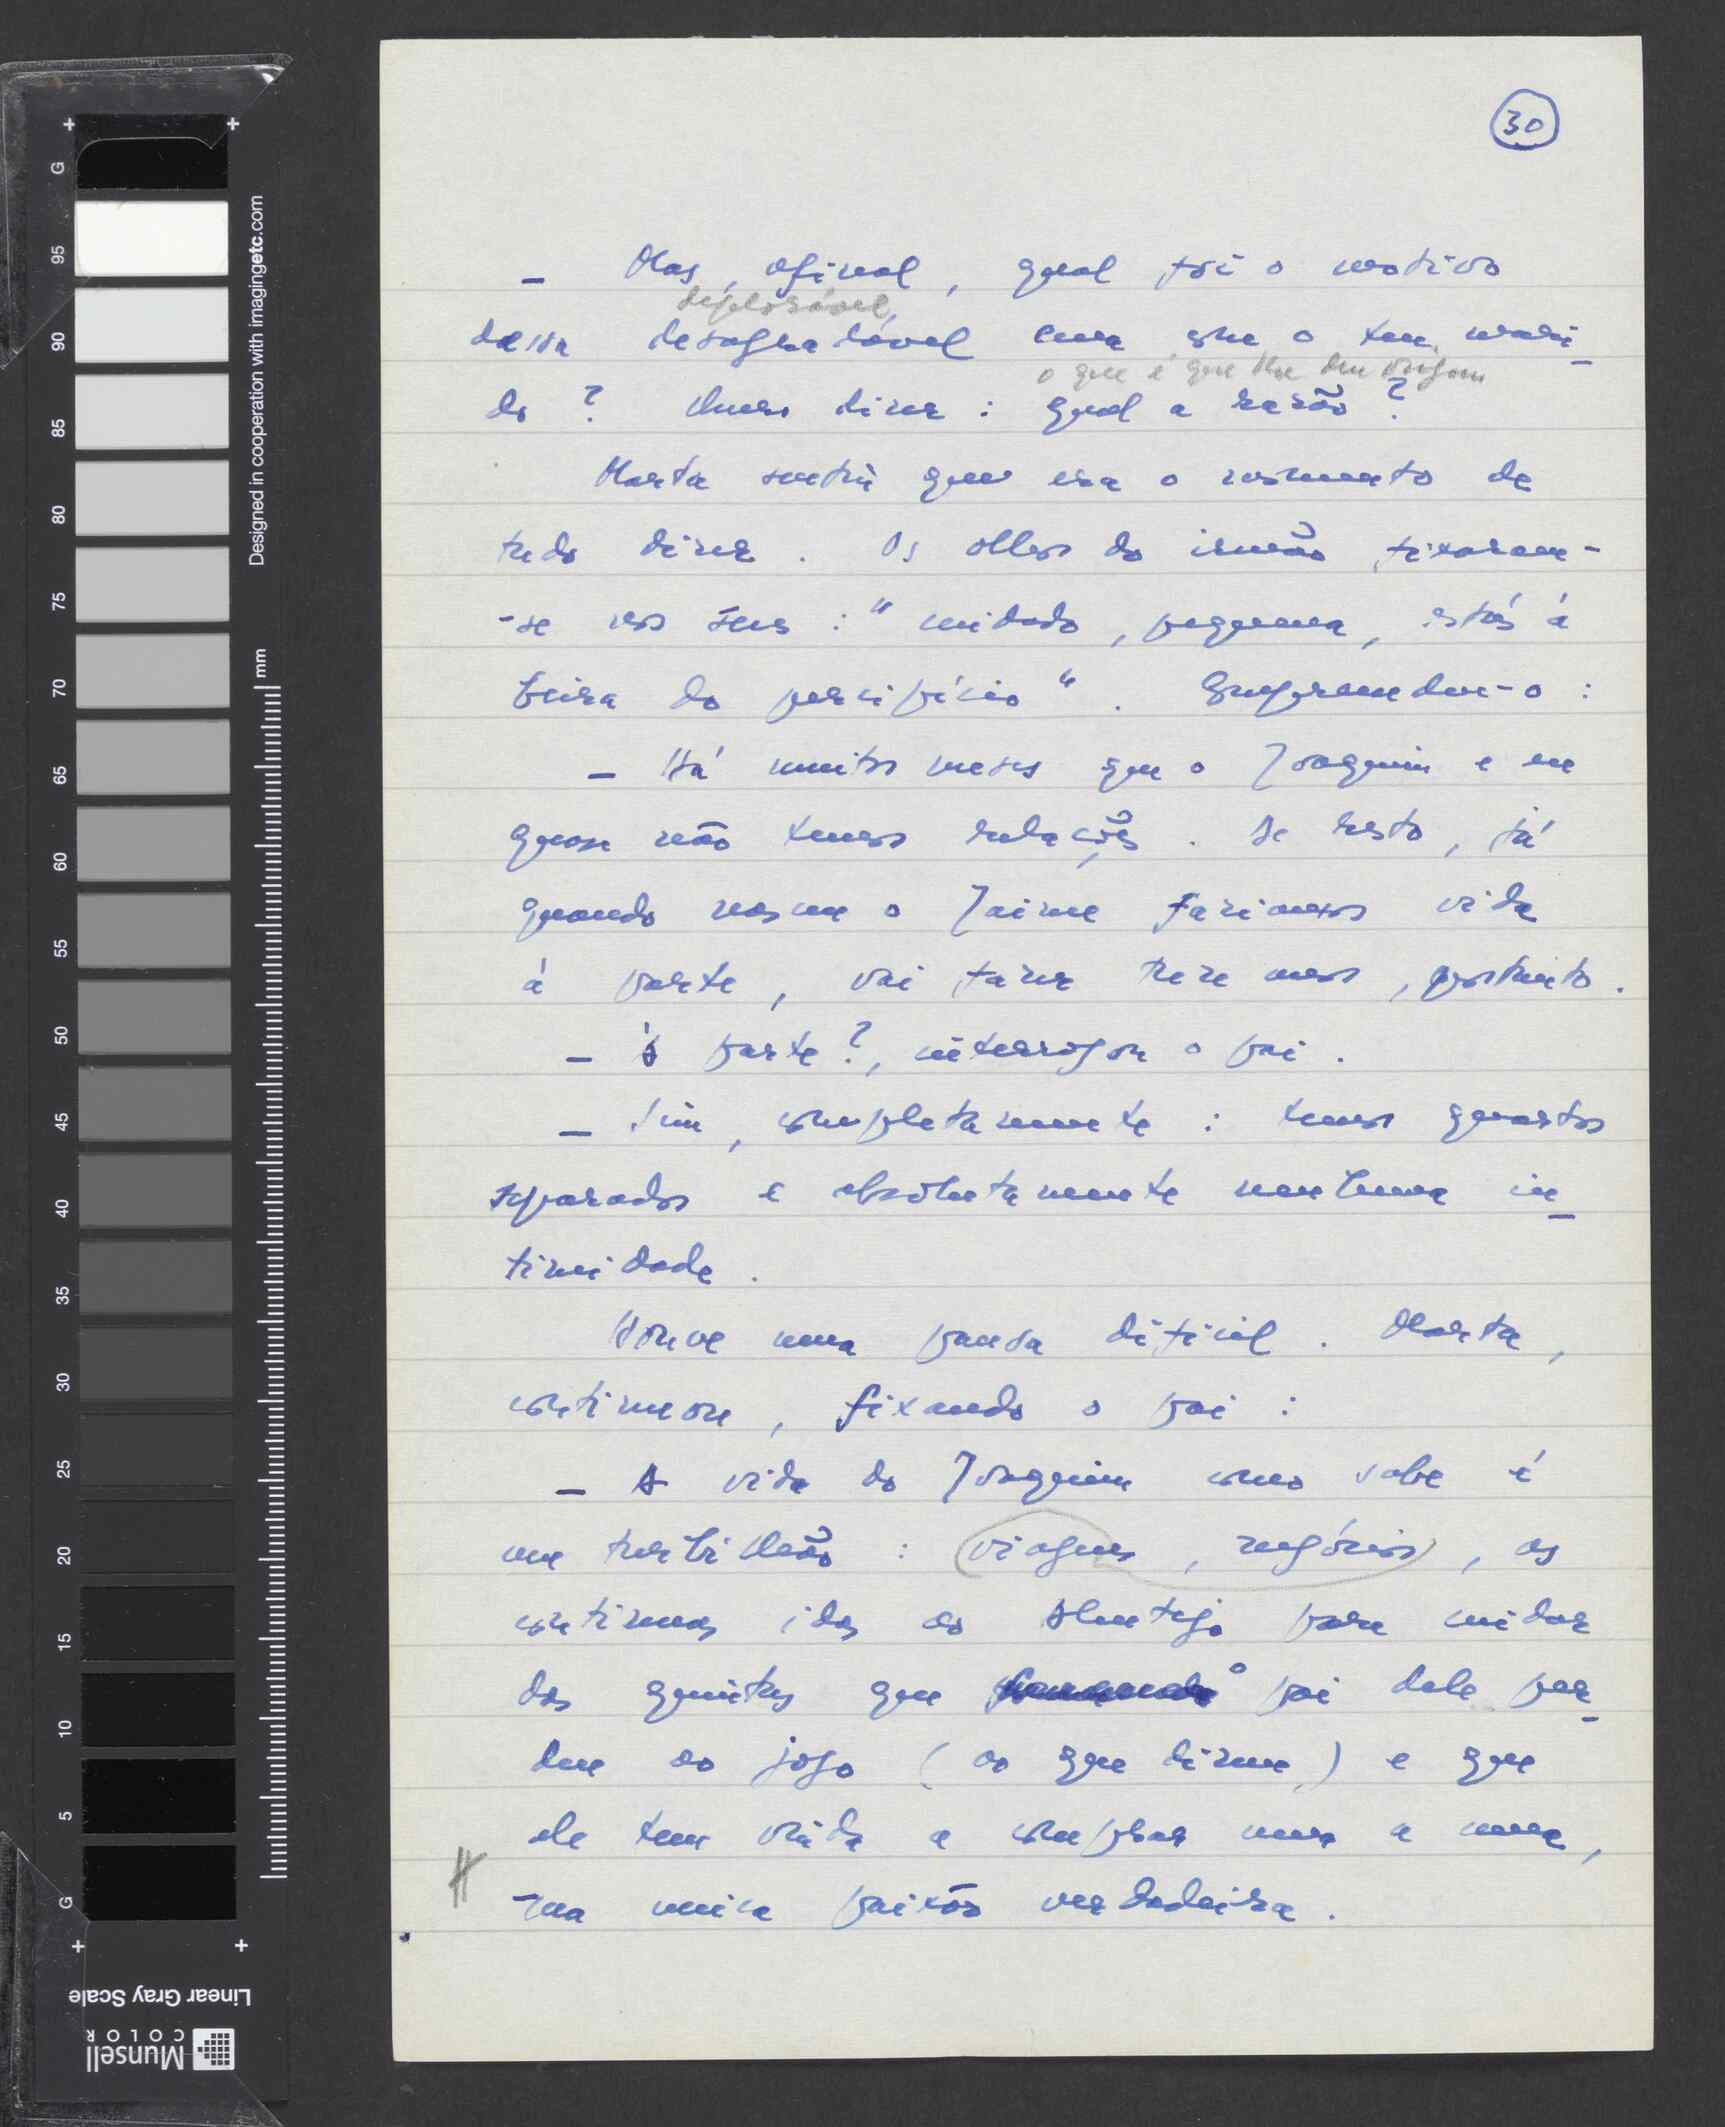 30
— Mas, afinal, qual foi o motivo
deplorável,
dessa desagradável cena com o teu mari-
o que é que lhe deu origem
do? Quero dizer: qual a razão?
Marta sentiu que era o momento de
tudo dizer. Os olhos do irmão fixaram-
-se nos seus: "cuidado, pequena, estás à
beira do precipício". Surpreendeu-o:
— Há muitos meses que o Joaquim e eu
quase não temos relações. De resto, já
quando nasceu o Jaime fazíamos vida
à parte, vai fazer treze anos, portanto.
— À parte?, interrogou o pai.
— Sim, completamente: temos quartos
separados e absolutamente nenhuma in-
timidade.
Houve uma pausa difícil. Marta,
continuou, fixando o pai:
— A vida do Joaquim como sabe é
um turbilhão: (viagens, negócios), as
contínuas idas ao Alentejo para cuidar
das quintas que o pai dele per-
deu ao jogo (ao que dizem) e que
ele tem vindo a comprar uma a uma,
sua única paixão verdadeira.
Designed in cooperation with imagingetc.com
mm
G
95
90
85
80
75
70
65
60
55
50
45
40
35
30
25
20
15
10
5
G
Linear Gray Scale
Munsell
COLOR